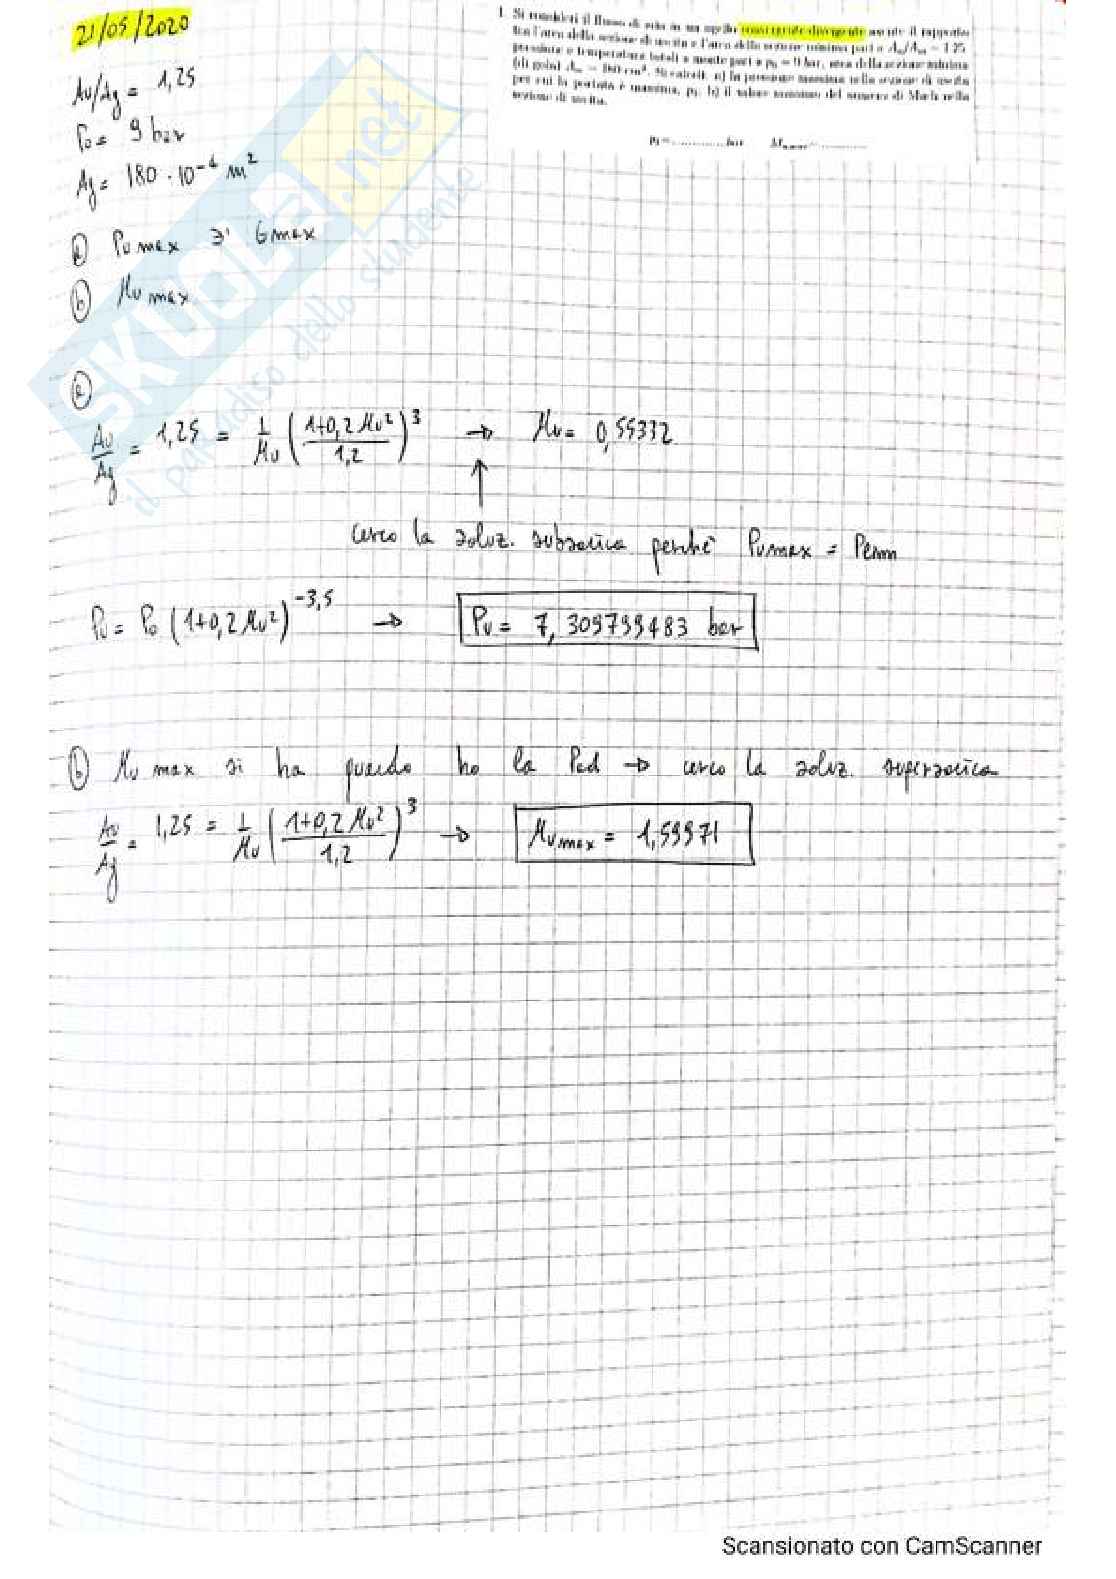 21/05/2020
1. Si consideri il flusso di aria in un ugello convergente-divergente avente il rapporto
tra l'area della sezione di uscita e l'area della sezione minima pari a Au/Am = 1.25
pressione e temperatura totali a monte pari a p0 = 9 bar, area della sezione minima
(di gola) Am = 180 cm². Si calcoli: a) la pressione massima nella sezione di uscita
per cui la portata è massima, p1. b) il valore massimo del numero di Mach nella
sezione di uscita.
p1 = ............bar
Au/Ag = 1,25
P0 = 9 bar
Ag = 180 · 10⁻⁴ m²
ⓐ Pu max ∋' Gmax
ⓑ Mu max
ⓐ
Au/Ag = 1,25 = 1/Mu ((1+0,2 Mu²)/1,2)³ → Mu = 0,55332
↑
cerco la soluz. subsonica perché Pumax = Pcrm
Pu = P0 (1+0,2 Mu²)^-3,5 → Pu = 7,309799483 bar
ⓑ Mu max si ha quando ho la Pad → cerco la soluz. supersonica
Au/Ag = 1,25 = 1/Mu ((1+0,2 Mu²)/1,2)³ → Mu,max = 1,59971
SKUOLA.net
il paradiso dello studente
Scansionato con CamScanner